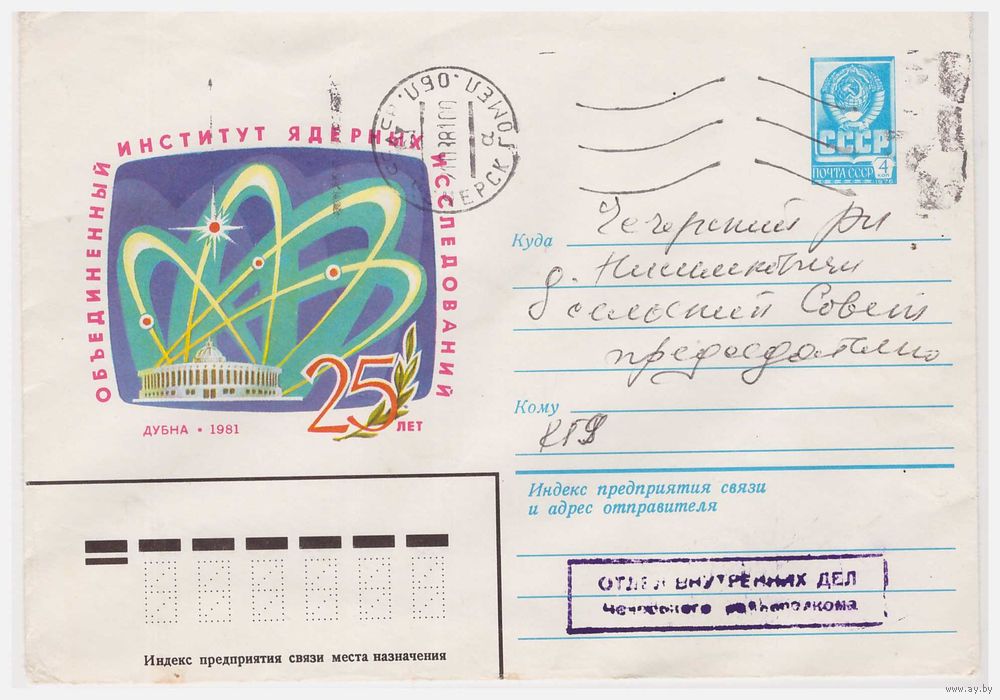 ОБЪЕДИНЕННЫЙ ИНСТИТУТ ЯДЕРНЫХ ИССЛЕДОВАНИЙ
25 ЛЕТ
ДУБНА • 1981
ГОМЕЛ. ОБЛ.
СССР
ПОЧТА СССР 4 КОП
1978
Куда Чечерский рн
д.
сельский Совет
председателю
Кому
Индекс предприятия связи
и адрес отправителя
ОТДЕЛ ВНУТРЕННИХ ДЕЛ
Чечерского райисполкома
Индекс предприятия связи места назначения
www.ay.by